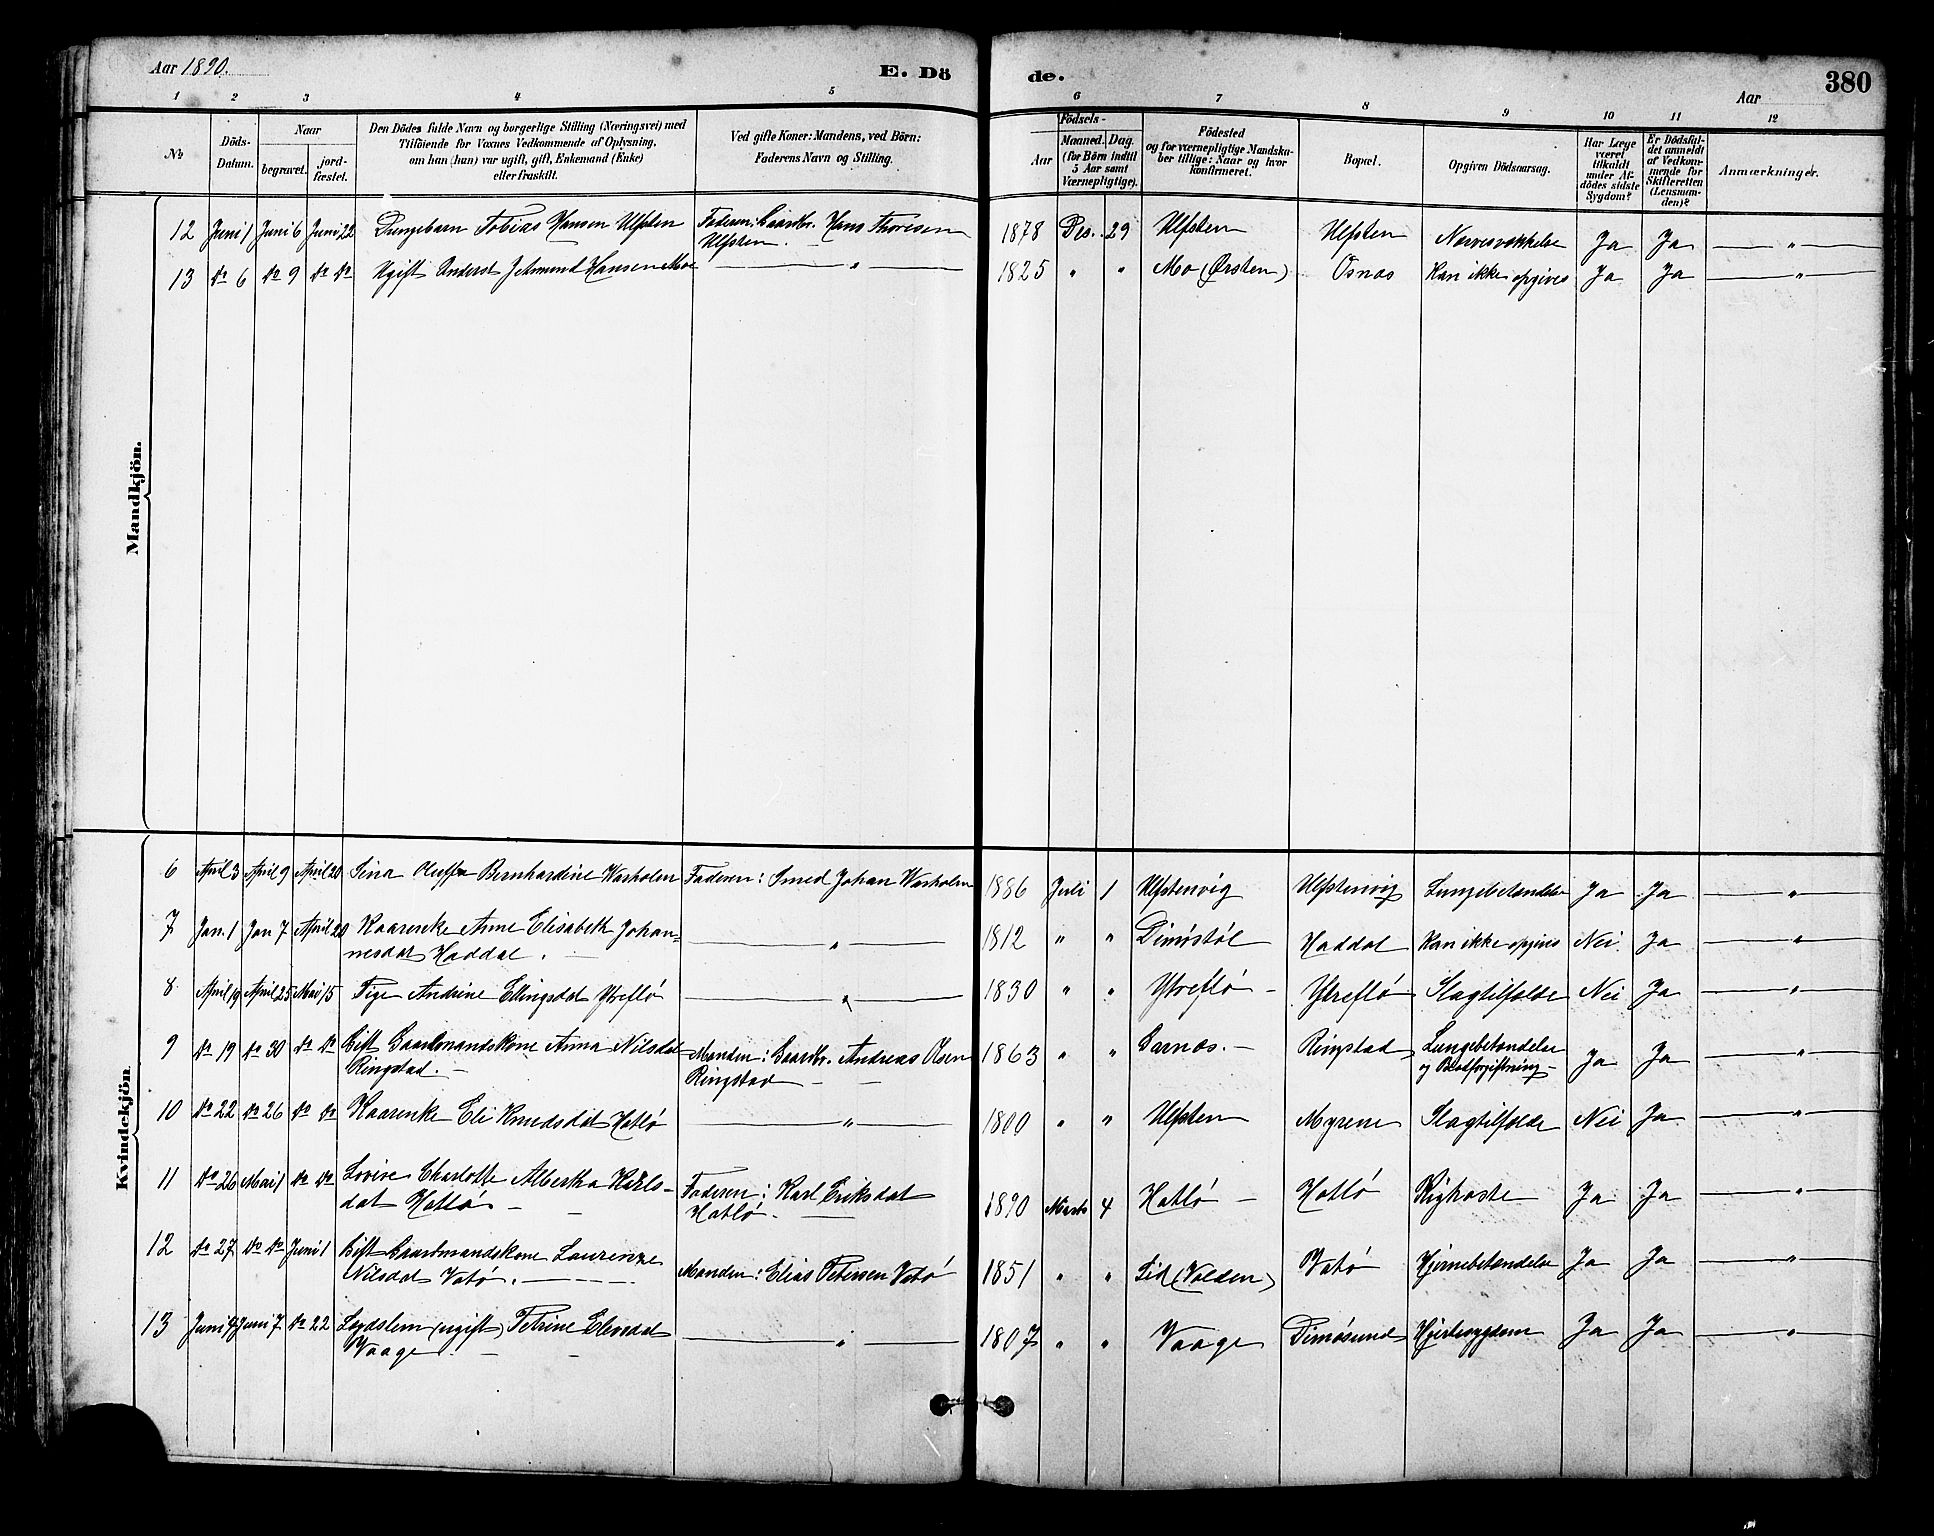 Aar 1890.
E. Dö
de.
Aar
380
1 2 3 4 5 6 7 8 9 10 11 12
№
Döds-
Datum.
Naar
begravet.
jord-
fæstet.
Den Dödes fulde Navn og borgerlige Stilling (Næringsvei) med
Tilföiende for Voxnes Vedkommende af Oplysning,
om han (hun) var ugift, gift, Enkemand (Enke)
eller fraskilt.
Ved gifte Koner: Mandens, ved Börn:
Faderens Navn og Stilling.
Födsels-
Aar
Maaned. Dag.
(for Börn indtil
5 Aar samt
Værnepligtige).
Födested
og for værnepligtige Mandska-
ber tillige: Naar og hvor
konfirmeret.
Bopæl.
Opgiven Dödsaarsag.
Har Læge
været
tilkaldt
under Af-
dödes sidste
Sygdom?
Er Dödsfal-
det anmeldt
af Vedkom-
mende for
Skifteretten
(Lensman-
den)?
Anmærkninger.
Mandkjön.
12 Juni 1 Juni 6 Juni 22 Drengebarn Tobias Hansen Ulfsten Faderen: Gaardbr. Hans Thoresen
Ulfsten. 1878 Des. 29 Ulfsten Ulfsten Ja Ja — " —
13 do 6 do 9 do do Ugift Anderst Jetmund Hansen Moe — " — 1825 " " Mo (Ørsten) Osnas Kan ikke opgives Ja Ja — " —
Kvindekjön
6 April 3 April 9 April 20 Sina Oluffa Bernhardine Warholm Faderen: Smed Johan Warholm 1886 Juli 1 Ulfstenvig Ulfstenvig Lungebetændelse Ja Ja — " —
7 Jan. 1 Jan 7 April 20 Kaarenke Anne Elisabeth Johan=
nesdat Haddal. — " — 1812 " " Dimöstöl Haddal Kan ikke opgives Nei. Ja — " —
8 April 19 April 25 Mai 15 Pige Andrine Ellingsdat Ytreflö — " — 1830 " " Ytreflö — Ytreflö Slagtilfælde Nei Ja — " —
9 do 19 do 30 do do Gift Gaardmandskone Anna Nilsdat
Ringstad. — Manden: Gaardbr. Andreas Olsen
Ringstad — 1863 " " Garnæs. — Ringstad Lungebetændelse
og Blodforgiftning — Ja Ja — " —
10 do 22 do 26 do do Kaarenke Eli Knudsdat Hatlö — " — 1800 " " Ulfsten Myrene Slagtilfælde Nei Ja — " —
11 do 26 Mai 1 do do Lovise Charlotte Albertha Karls-
dat Hatlö — Faderen: Karl Eriksdat
Hatlö. — 1890 Marts 4 Hatlö — Hatlö Kighoste Ja Ja — " —
12 do 27 do do Juni 1 Gift Gaardmandskone Laurenze
Nilsdat Vatö. — Manden: Elias Petersen Vatö 1851 " " Lid (Volden) Vatö Hjernebetændelse Ja Ja — " —
13 Juni 4 Juni 7 do 22 Lægdslem (ugift) Petrine
Vaage. — " — 1807 " " Vaage Dimösund Hjertesygdom Ja Ja — " —